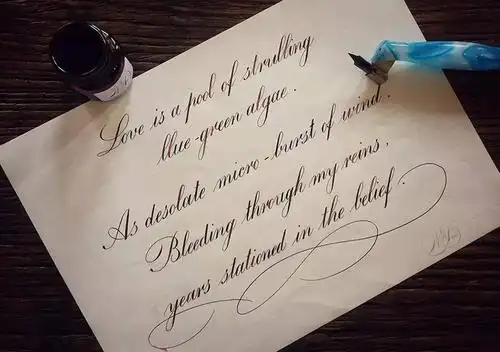 Love is a pool of strulling
blue-green algae.
As desolate micro-burst of wind.
Bleeding through my reins,
years stationed in the belief.